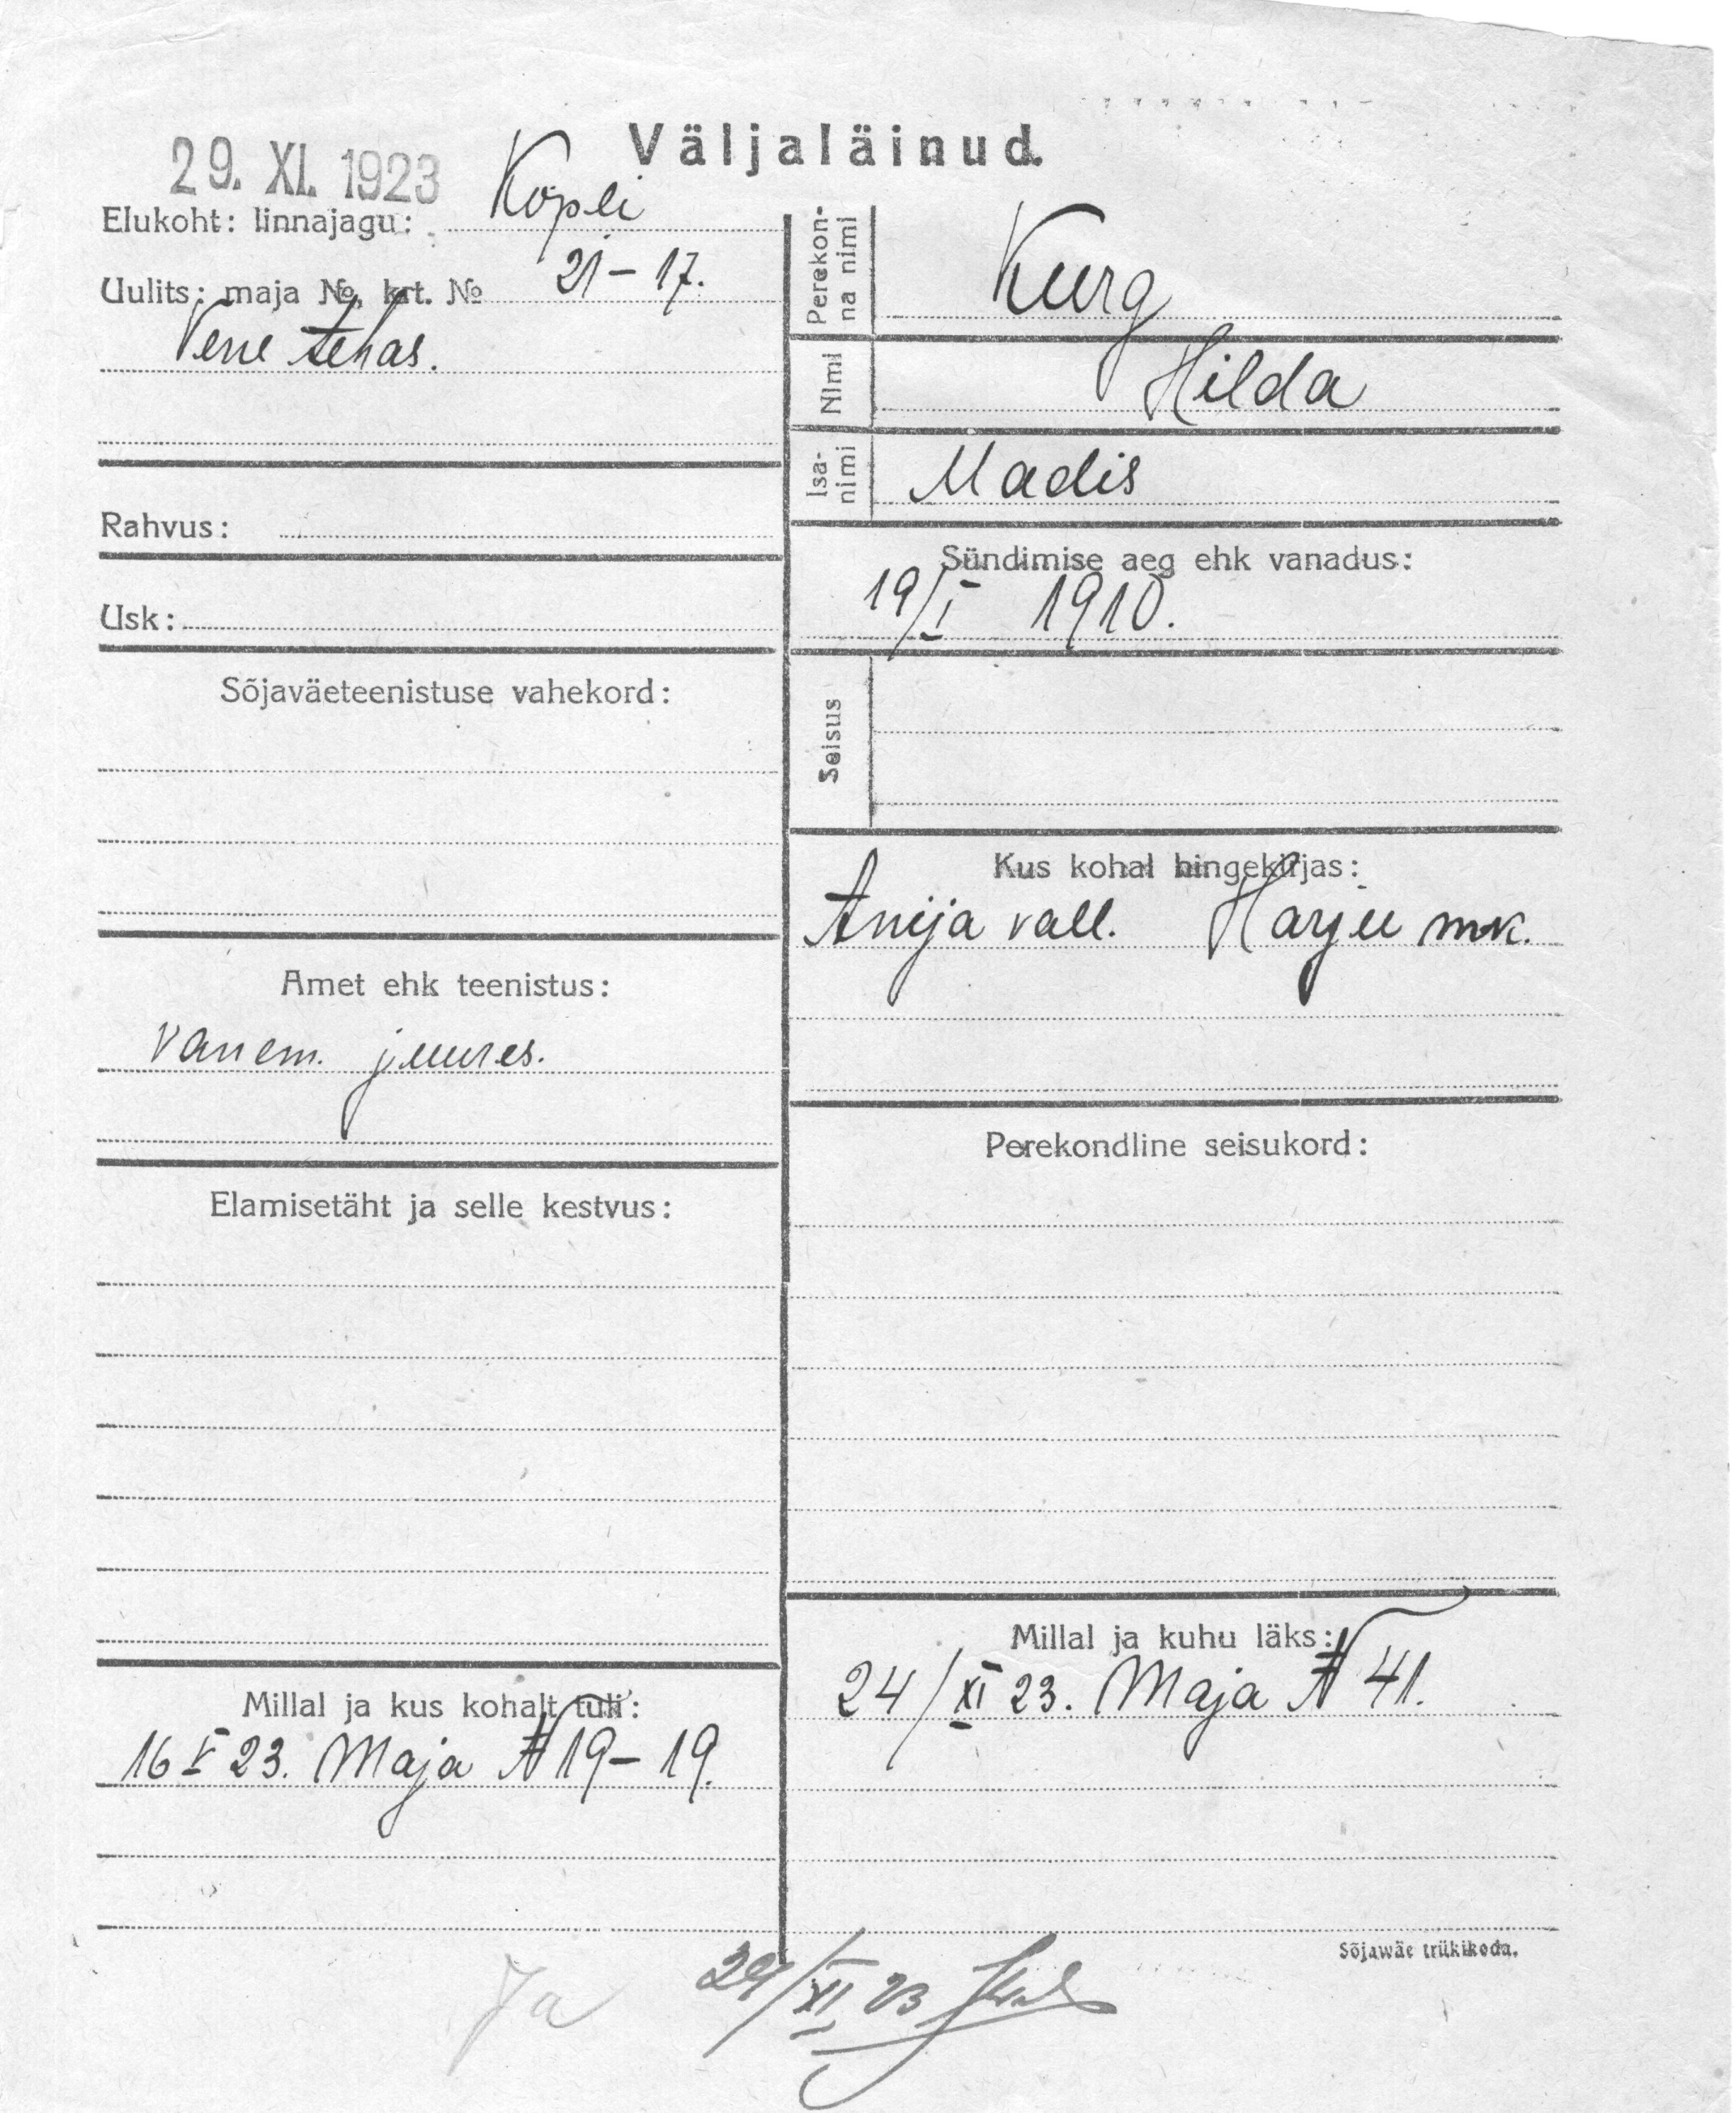 Väljaläinud.
29. XI. 1923
Elukoht: linnajagu: Kopli
Uulits: maja №, krt. № 21 – 17.
Vene tehas.
Rahvus:
Usk:
Sõjaväeteenistuse vahekord:
Amet ehk teenistus:
vanem. juures.
Elamisetäht ja selle kestvus:
Millal ja kus kohalt tuli:
16 V 23. Maja № 19 – 19.
Perekon-
na nimi
Kurg
Nimi
Hilda
Isa-
nimi
Madis
Sündimise aeg ehk vanadus:
19/I 1910.
Seisus
Kus kohal hingekirjas:
Anija vall. Harju mk.
Perekondline seisukord:
Millal ja kuhu läks:
24/XI 23. Maja № 41.
Sõjawäe trükikoda.
Ja
29/XI 23